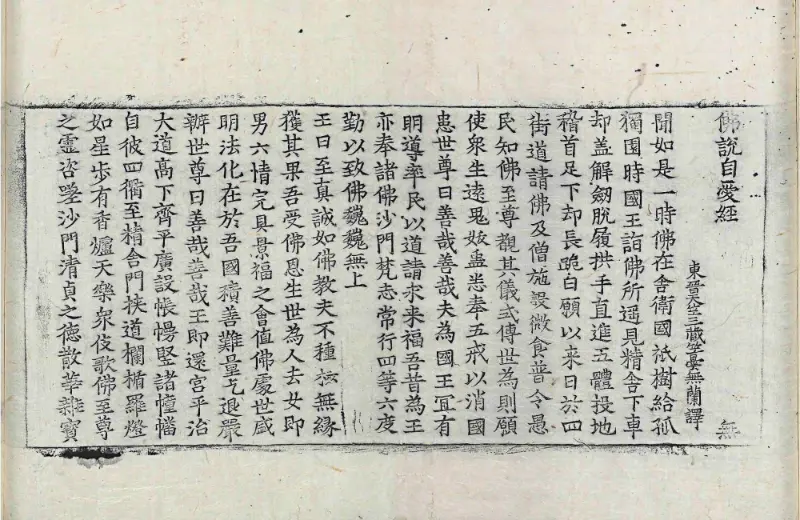 佛說自愛經 無
東晉天竺三藏竺曇無蘭譯
聞如是一時佛在舍衛國祇樹給孤
獨園時國王詣佛所遥見精舍下車
却盖解劒脫履拱手直進五體投地
稽首足下却長跪白願以来日於四
街道請佛及僧施設微食普令愚
民知佛至尊觀其儀式傳世為則願
使衆生遠鬼妖蠱悉奉五戒以消國
患世尊曰善哉善哉夫為國王冝有
明導率民以道請求来福吾昔為王
亦奉諸佛沙門梵志常行四等六度
勤以致佛巍巍無上
王曰至真誠如佛教夫不種核無緣
獲其果吾受佛恩生世為人去女即
男六情完具景福之會值佛處世盛
明法化在於吾國積善難量乞退嚴
辦世尊曰善哉善哉王即還宮平治
大道高下齊平廣設帳幔竪諸幢幡
自彼四衢至精舍門挾道欄楯羅燈
如星步有香爐天樂衆伎歌佛至尊
之靈咨嗟沙門清貞之德散華雜寶